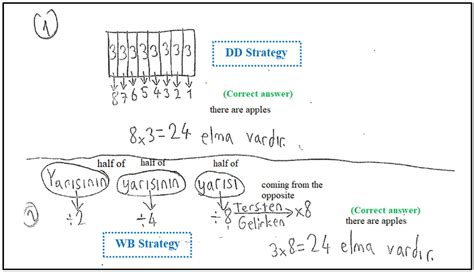 1
3 3 3 3 3 3 3 3
DD Strategy
8 7 6 5 4 3 2 1
(Correct answer)
there are apples
8x3=24 elma vardır.
half of half of half of
Yarısının yarısının yarısı
coming from the opposite
2 ÷2 ÷4 ÷8 Tersten Gelirken x8
(Correct answer)
there are apples
WB Strategy
3x8=24 elma vardır.